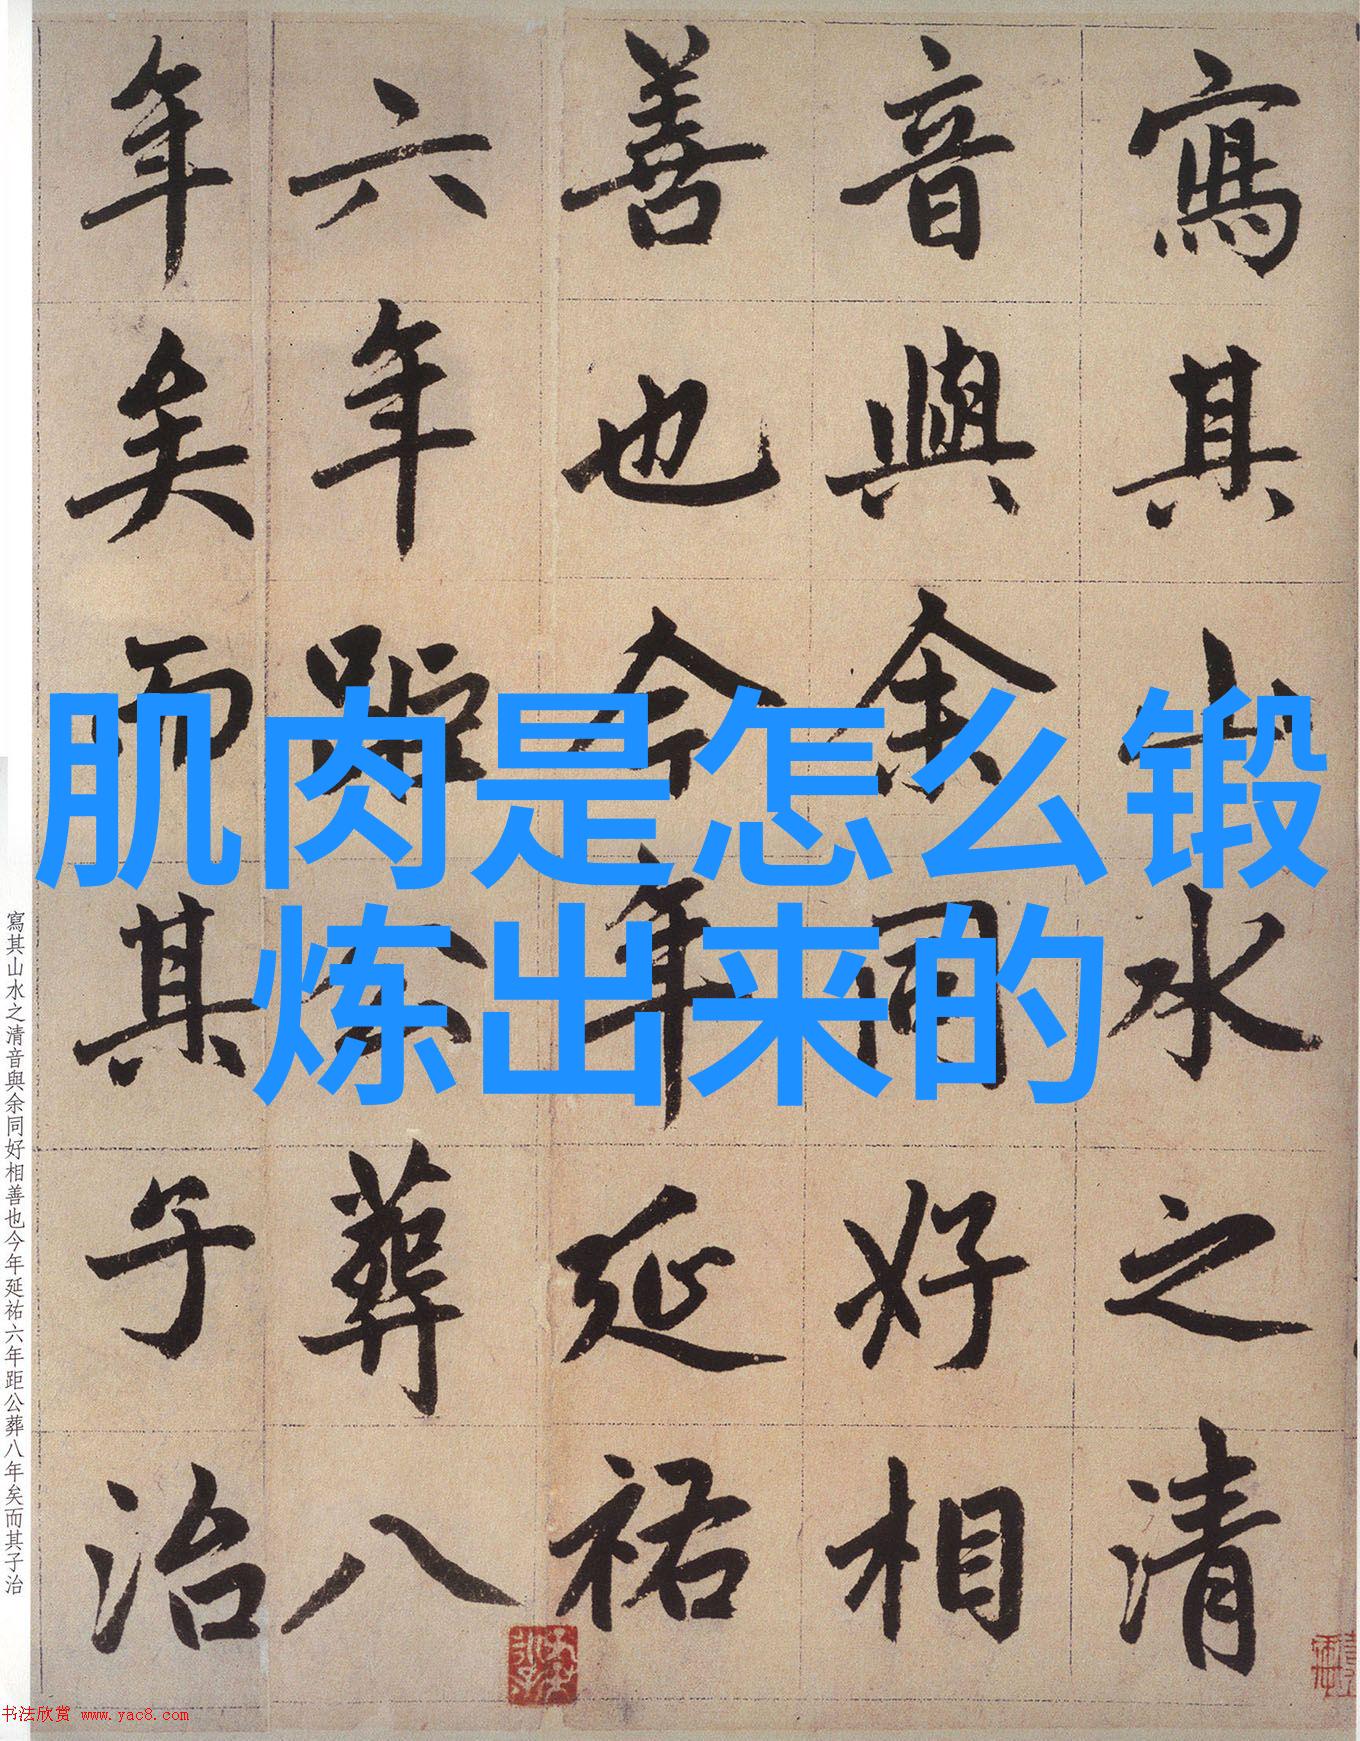 寫其山水之清
音與余同好相
善也今年延祐
六年距公葬八
年矣而其子治
肌肉是怎么锻
炼出来的
寫其山水之清音與余同好相善也今年延祐六年距公葬八年矣而其子治
书法欣赏 www.yac8.com